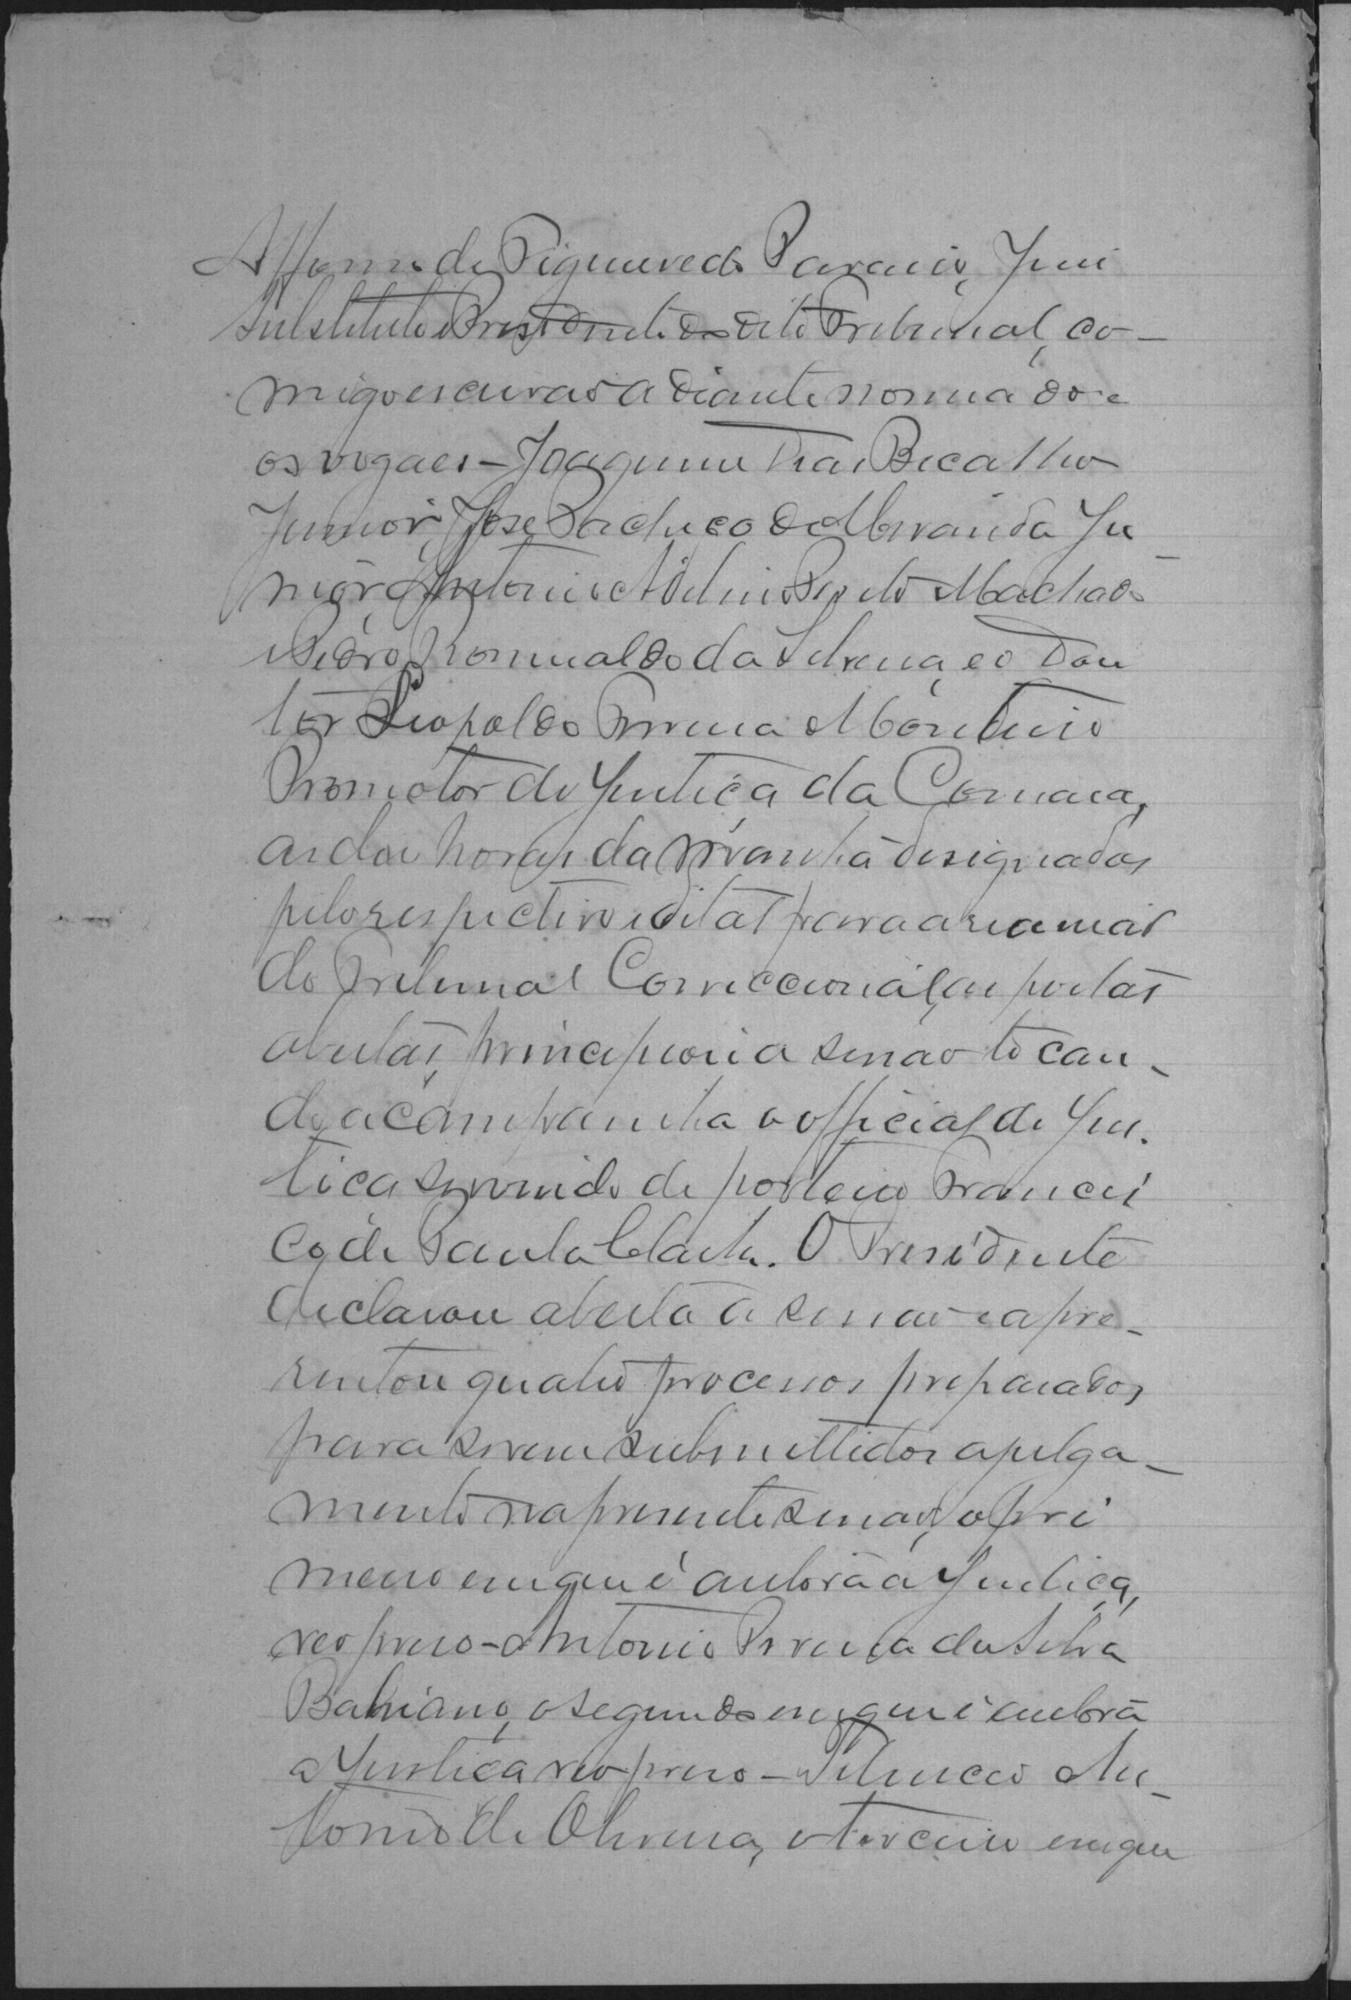 Affonso de Figueiredo Paraiso, Juiz
Substituto e Presidente do dito Tribunal, co-
migo escrivão adiante nomeado e
os vogaes - Joaquim Dias Bicalho
Junior, José Pacheco de Miranda Ju-
nior, Antonio Machado
e Pedro Romualdo da Silveira, e o Dou
tor Leopoldo Monteiro
Promotor de Justiça da Comarca,
as dez horas da manhã designadas
pelo respectivo edital para a reunião
do Tribunal Correccional, as portas
abertas, principiou a sessão tocan-
do a campainha o official de Jus-
tiça servindo de porteiro Francis
co de Paula. O Presidente
declarou aberta a sessão e apre-
sentou quatro processos preparados
para serem submettidos a julga-
mento na presente sessão, o pri
meiro em que é autora a Justiça,
reo preso - Antonio Pereira da Silva
Bahiano, o segundo em que é autora
a Justiça reo preso - An-
tonio de Oliveira, o terceiro em que